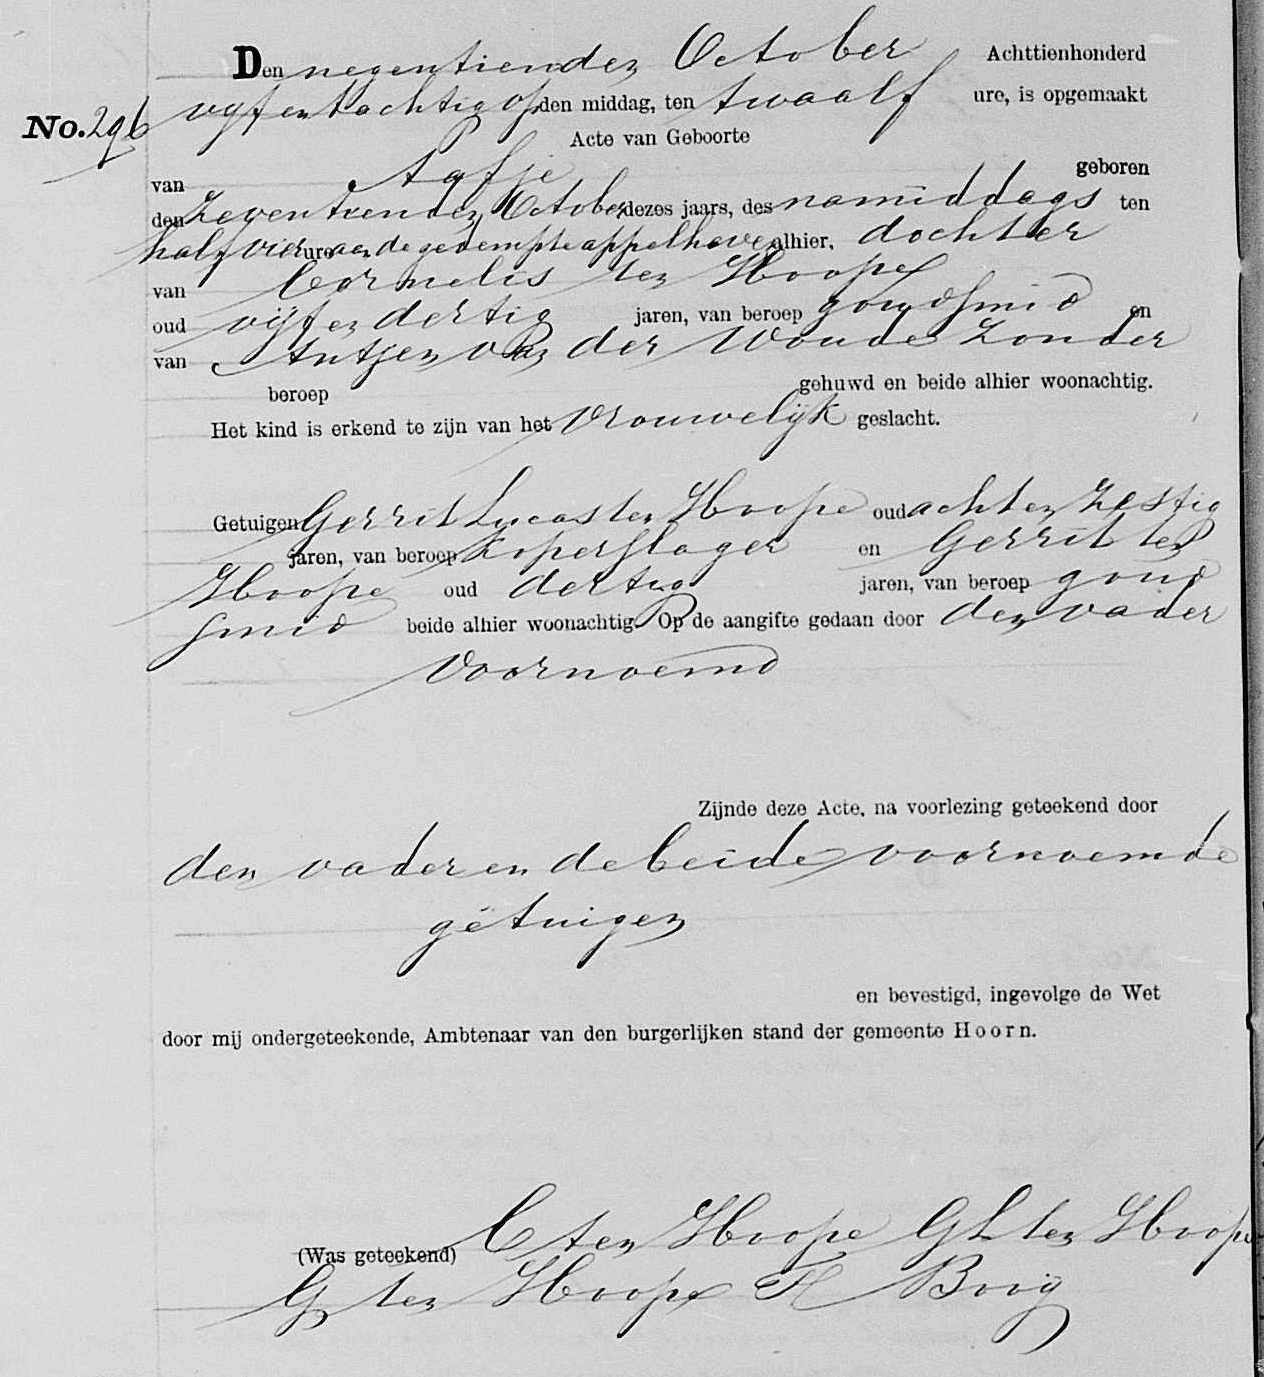 Den negentienden October Achttienhonderd
No. 296 vijf en tachtig op den middag, ten twaalf ure, is opgemaakt
Acte van Geboorte
van Aafje geboren
den Zeventienden October dezes jaars, des namiddags ten
half vier ure aan de gedempte appelhaven alhier, dochter
van Cornelis ten Hoope
oud vijf en dertig jaren, van beroep goudsmid en
van Antjen van der Woude Zonder
beroep gehuwd en beide alhier woonachtig.
Het kind is erkend te zijn van het vrouwelijk geslacht.
Getuigen Gerrit Lucas ten Hoope oud acht en Zestig
jaren, van beroep Koperslager en Gerrit ten
Hoope oud dertig jaren, van beroep goud
smid beide alhier woonachtig. Op de aangifte gedaan door den vader
voornoemd
Zijnde deze Acte, na voorlezing geteekend door
den vader en de beide voornoemde
getuigen
en bevestigd, ingevolge de Wet
door mij ondergeteekende, Ambtenaar van den burgerlijken stand der gemeente Hoorn.
(Was geteekend) C ten Hoope GL ten Hoope
G ten Hoope K Booij